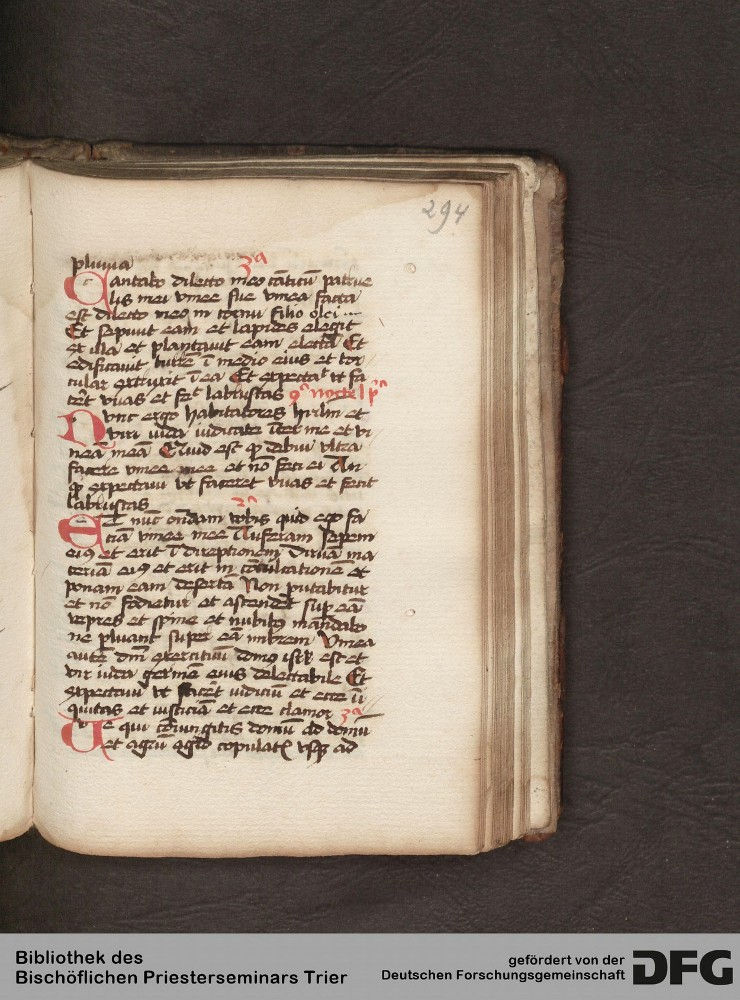 294
pluuia
3ª
Cantabo dilecto meo cāticū patrue
lis mei vinee sue vinea facta
est dilecto meo in cornu filio olei
Et sepiuit eam et lapides elegit
ex illa et plantauit eam electā Et
edificauit turrē ī medio eius et tor
cular extruxit ī ea Et expectaᵗ vt fa
ceret vuas et fecᵗ labruscas
Nunc ergo habitatores ihrlm et
viri iuda iudicate īter me et vi
neā meā Quid est qᵈ debui vltra
facere vinee mee et nō feci ei An
qᵈ expectaui vt faceret vuas et fecit
labruscas
2ª
Et nunc ondam vobis quid ego fa
ciā vinee mee Auferam sepem
eiꝰ et erit ī direptionem Diruā ma
ceriā eiꝰ et erit in cōculcationē et
ponam eam desertā Non putabitur
et nō fodietur et ascendēt sup eā
vepres et spine et nubibꝰ mandabo
ne pluant super eā imbrem Vinea
autē dnī exercituū domꝰ isrl est et
vir iuda germē eius delectabile Et
expectaui vt facēt iudiciū et ecce ī
quitas et iusticiā et ecce clamor
3ª
Ve qui cōiungitis domū ad domū
et agrū agro copulatꝭ vsqꝫ ad
Bibliothek des
Bischöflichen Priesterseminars Trier
gefördert von der
Deutschen Forschungsgemeinschaft
DFG